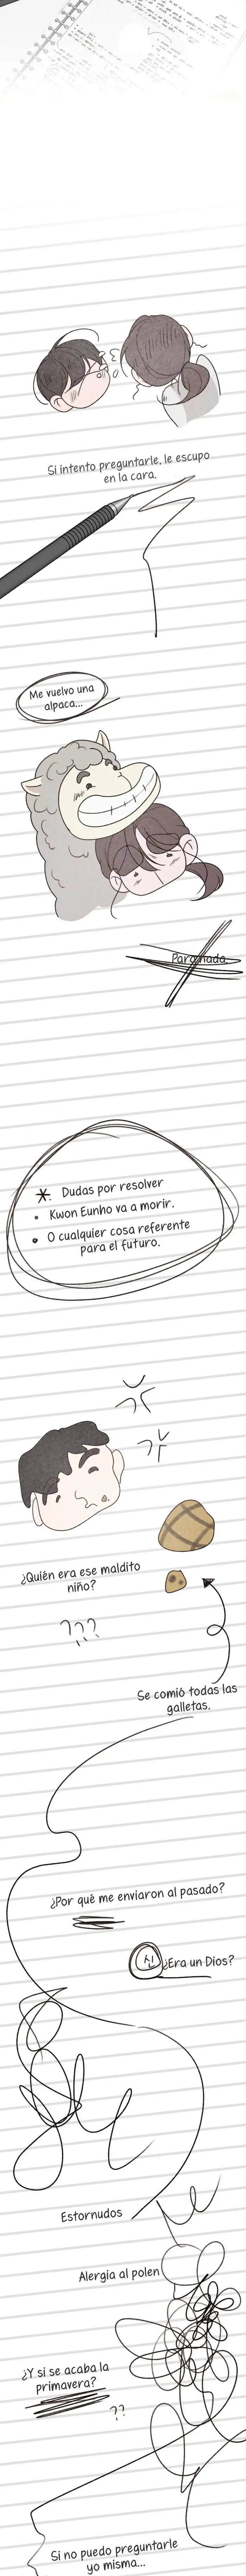 Si intento preguntarle, le escupo
en la cara.
Me vuelvo una
alpaca...
Para nada.
* Dudas por resolver
• Kwon Eunho va a morir.
• O cualquier cosa referente
para el futuro.
¿Quién era ese maldito
niño?
???
Se comió todas las
galletas.
¿Por qué me enviaron al pasado?
신 ¿Era un Dios?
Estornudos
Alergia al polen
¿Y si se acaba la
primavera?
??
Si no puedo preguntarle
yo misma...